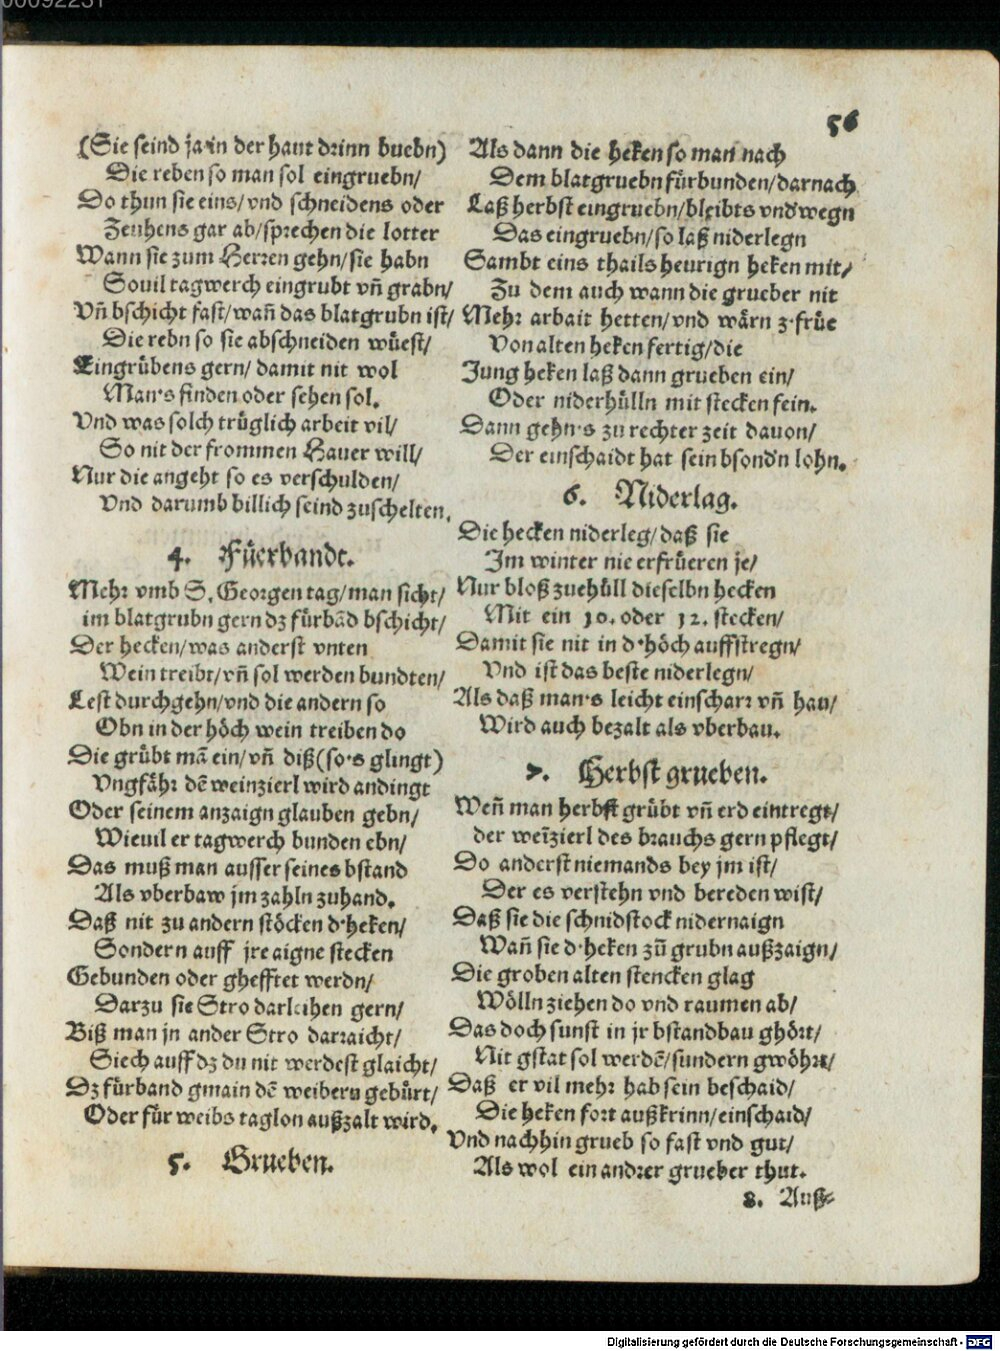 00092231
56
(Sie seind ja in der haut drinn buebn)
Die reben so man sol eingruebn/
Do thun sie eins/vnd schneidens oder
Zeuhens gar ab/sprechen die lotter
Wann sie zum Herren gehn/sie habn
Souil tagwerch eingrubt vn̄ grabn/
Vn̄ bschicht fast/wan̄ das blatgrubn ist/
Die rebn so sie abschneiden wüest/
Eingrübens gern/ damit nit wol
Man's finden oder sehen sol.
Vnd was solch trüglich arbeit vil/
So nit der frommen Hauer will/
Nur die angeht so es verschulden/
Vnd darumb billich seind zuschelten.
4. Füerbandt.
Mehr vmb S. Georgen tag/man sicht/
im blatgrubn gern dz fürbād bschicht/
Der hecken/was anderst vnten
Wein treibt/vn̄ sol werden bundten/
Lest durchgehn/vnd die andern so
Obn in der höch wein treiben do
Die grübt mā ein/vn̄ diß(so's glingt)
Vngfähr dē weinzierl wird andingt
Oder seinem anzaign glauben gebn/
Wieuil er tagwerch bunden ebn/
Das muß man ausser seines bstand
Als vberbaw jm zahln zuhand.
Daß nit zu andern stöcken d'heken/
Sondern auff jre aigne stecken
Gebunden oder ghefftet werdn/
Darzu sie Stro darleihen gern/
Biß man jn ander Stro darraicht/
Siech auff dz du nit werdest glaicht/
Dz fürband gmain dē weiberu gebürt/
Oder für weibs taglon außzalt wird.
5. Grueben.
Als dann die heken so man nach
Dem blatgruebn fürbunden/darnach
Laß herbst eingruebn/bleibts vnd'wegn
Das eingruebn/so laß niderlegn
Sambt eins thails heurign heken mit/
Zu dem auch wann die grueber nit
Mehr arbait hetten/vnd wärn z'früe
Von alten heken fertig/die
Jung heken laß dann grueben ein/
Oder niderhülln mit stecken fein.
Dann gehn's zu rechter zeit dauon/
Der einschaidt hat sein bsond'n lohn.
6. Niderlag.
Die hecken niderleg/daß sie
Im winter nie erfrüeren je/
Nur bloß zuehüll dieselbn hecken
Mit ein 10. oder 12. stecken/
Damit sie nit in d'höch auffstregn/
Vnd ist das beste niderlegn/
Als daß man's leicht einscharr vn̄ hau/
Wird auch bezalt als vberbau.
7. Herbst grueben.
Wen̄ man herbst grübt vn̄ erd eintregt/
der weīzierl des brauchs gern pflegt/
Do anderst niemands bey jm ist/
Der es verstehn vnd bereden wist/
Daß sie die schnidstock nidernaign
Wan̄ sie d'heken zū grubn außzaign/
Die groben alten stencken glag
Wölln ziehen do vnd raumen ab/
Das doch sunst in jr bstandbau ghört/
Nit gstat sol werdē/sundern gwöhrt/
Daß er vil mehr hab sein beschaid/
Die heken fort außkrinn/einschaid/
Vnd nachhin grueb so fast vnd gut/
Als wol ein andrer grueber thut.
8. Auß-
Digitalisierung gefördert durch die Deutsche Forschungsgemeinschaft - DFG